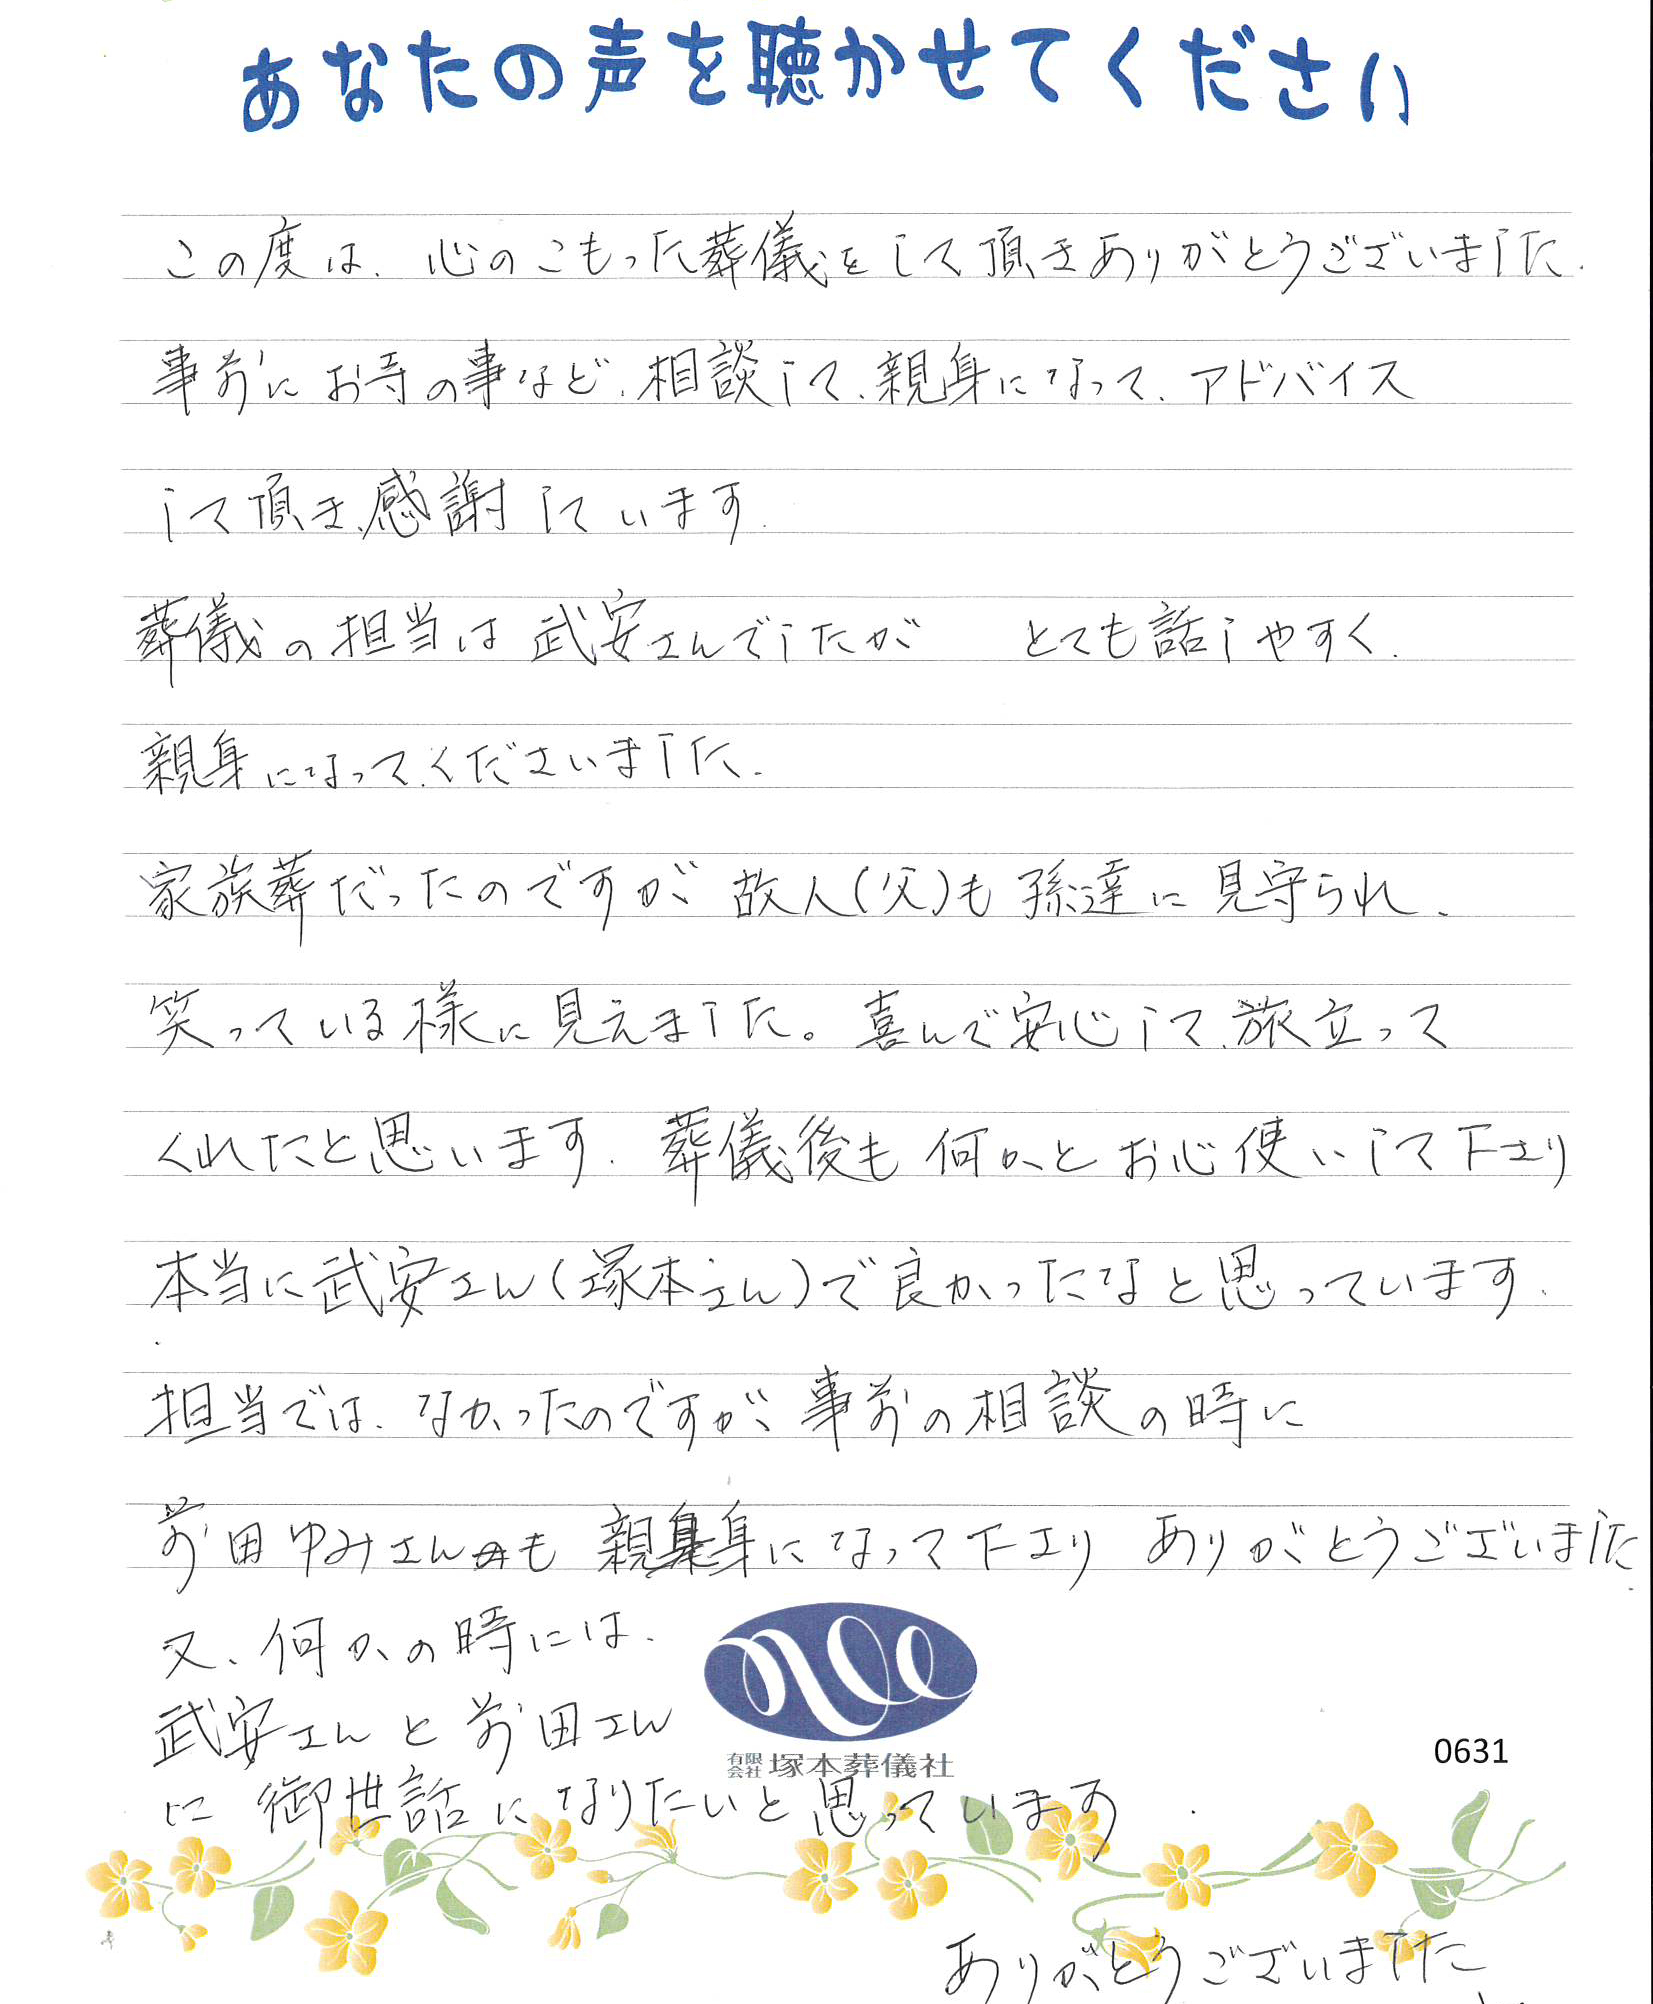 あなたの声を聴かせてください
この度は、心のこもった葬儀をして頂きありがとうございました.
事前にお寺の事など、相談して、親身になって、アドバイス
して頂き、感謝しています.
葬儀の担当は武安さんでしたが とても話しやすく、
親身になって、くださいました.
家族葬だったのですが故人(父)も孫達に見守られ、
笑っている様に見えました。喜んで安心して、旅立って
くれたと思います. 葬儀後も何かとお心使いして下さり
本当に武安さん(塚本さん)で良かったなと思っています.
担当では、なかったのですが、事前の相談の時に
前田ゆみさんも親身になって下さり ありがとうございました.
又、何かの時には、
武安さんと前田さん
に御世話になりたいと思っています.
有限会社 塚本葬儀社
0631
ありがとうございました